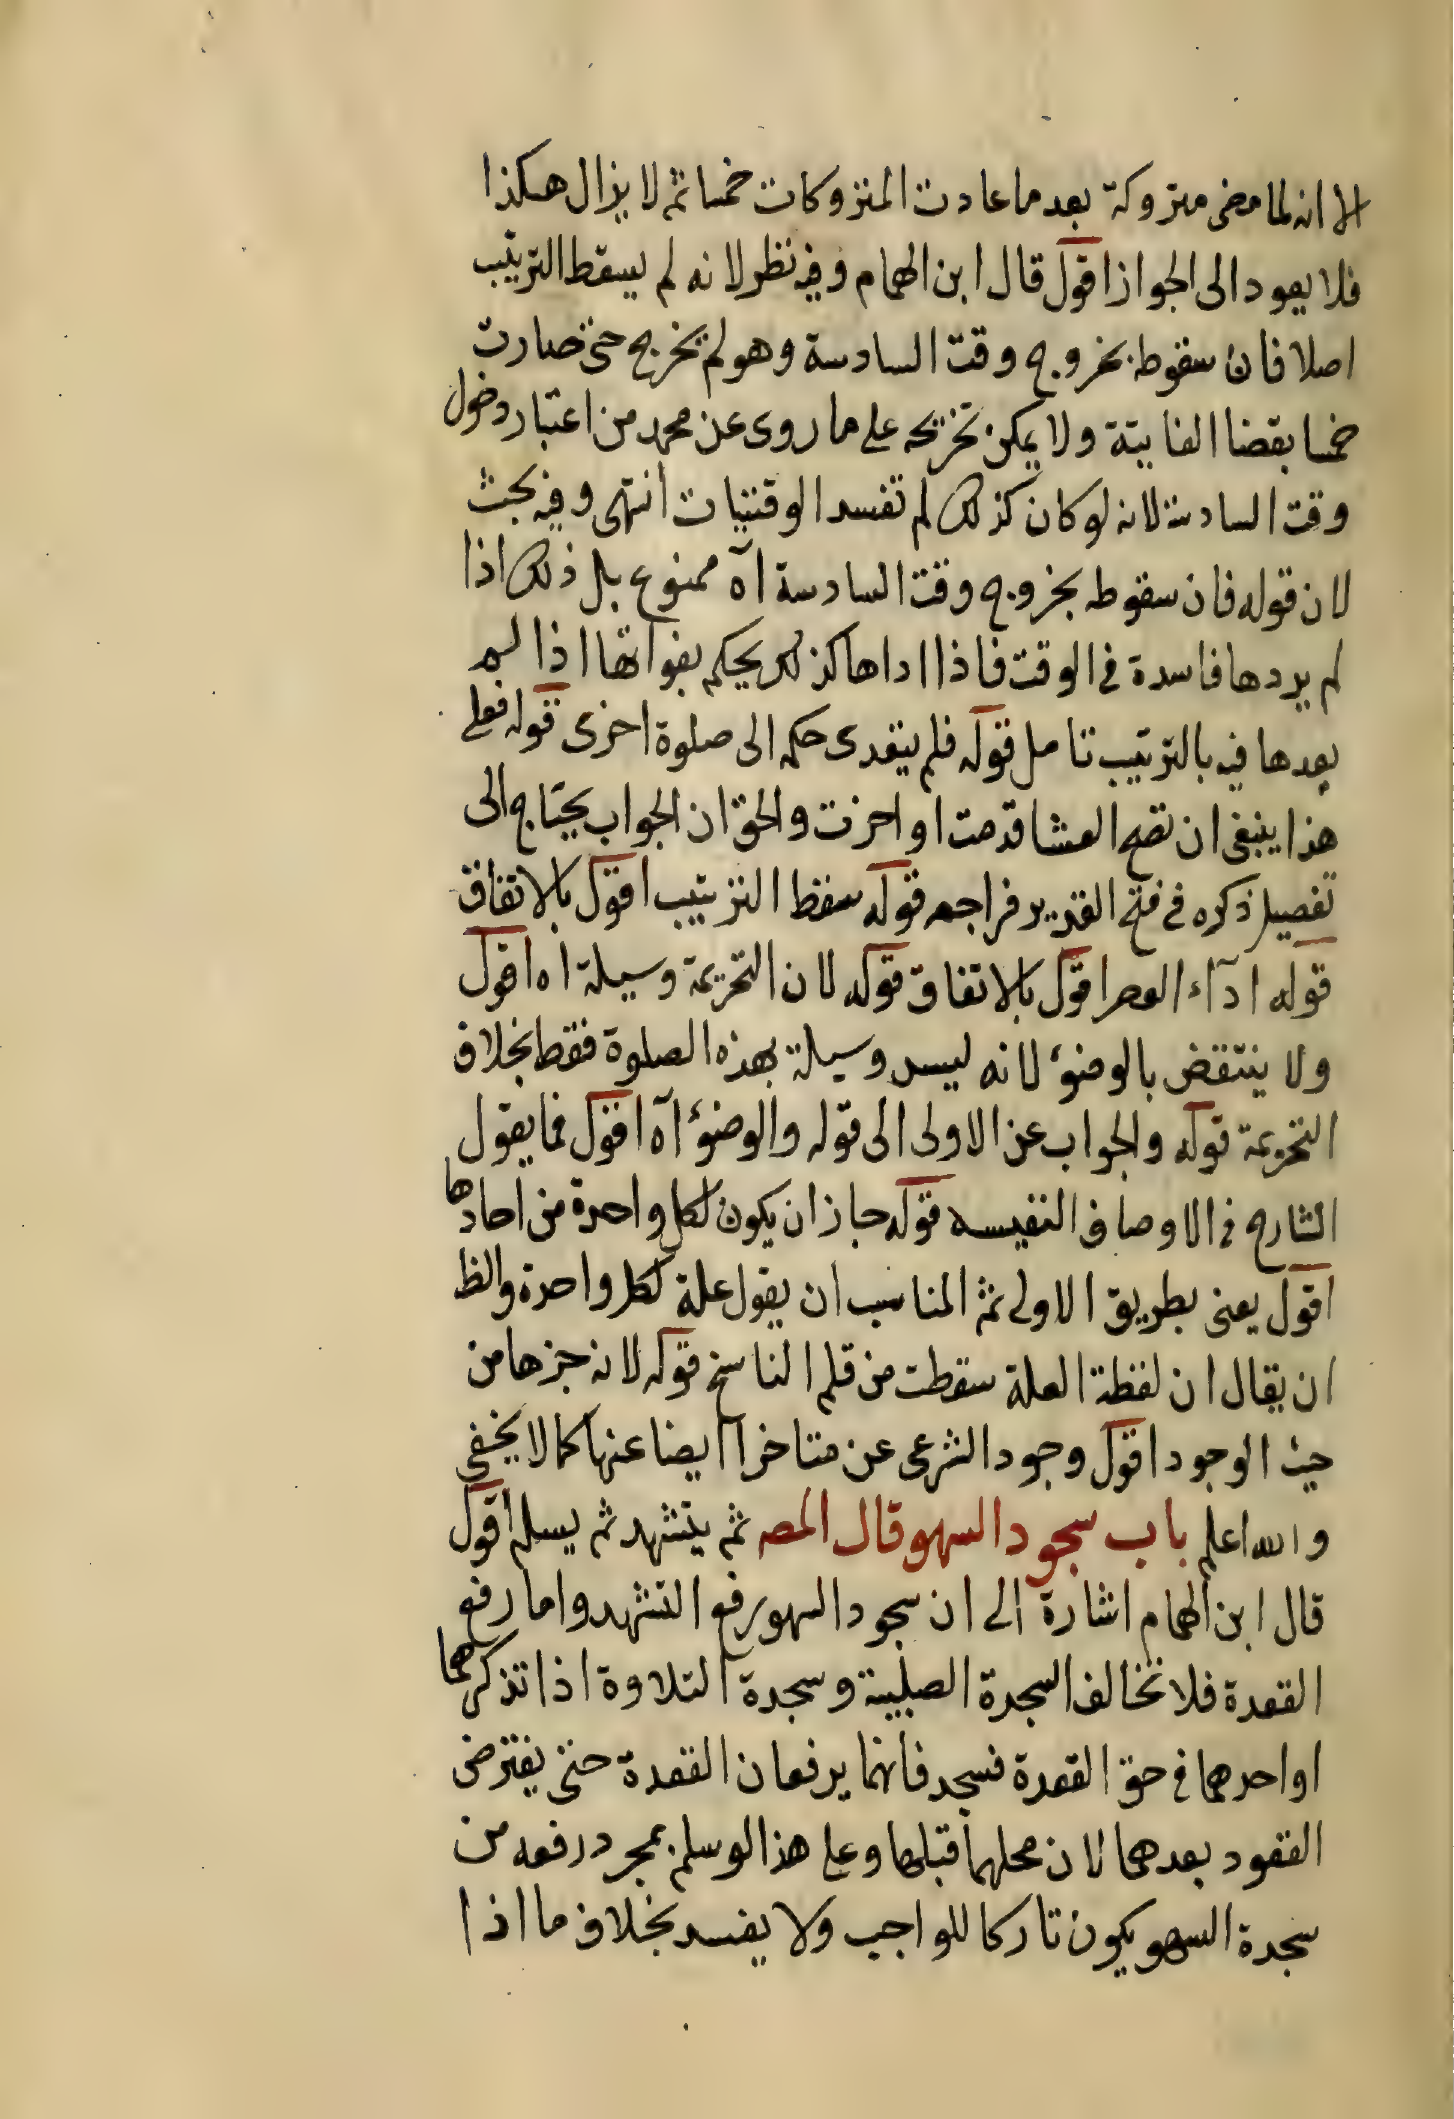 الا انه لما مضى متروكة بعد ما عادت المتروكات خمسا ثم لا يزال هكذا
فلا يعود الى الجواز اقول قال ابن الهمام وفيه نظر لانه لم يسقط الترتيب
اصلا فان سقوطه بخروج وقت السادسة وهو لم يخرج حتى صارت
خمسا بقضا الفايتة ولا يمكن تخريجه على ما روى عن محمد من اعتبار دخول
وقت السادسة لانه لو كان كذلك لم تفسد الوقتيات انتهى وفيه بحث
لان قوله فان سقوطه بخروج وقت السادسة آه ممنوع بل ذلك اذا
لم يردها فاسدة في الوقت فاذا اداها كذلك يحكم بفواتها اذا لم
يعدها فيه بالترتيب تامل قوله فلم يتعدى حكمه الى صلوة اخرى قوله فعلى
هذا ينبغى ان تصح العشا قدمت او اخرت والحق ان الجواب يحتاج الى
تفصيل ذكره في فتح القدير فراجعه قوله سقط الترتيب اقول بالاتفاق
قوله ادآء العصر اقول بالاتفاق قوله لان التحريمة وسيلة اه اقول
ولا ينتقض بالوضوء لانه ليس وسيلة بهذه الصلوة فقط بخلاف
التحريمة قوله والجواب عن الاولى الى قوله والوضوء آه اقول فما يقول
الشارح في الاوصاف النفيسه قوله جاز ان يكون لكل واحدة من احادها
اقول يعنى بطريق الاولى ثم المناسب ان يقول علة لكل واحدة والظ
ان يقال ان لفظة العلة سقطت من قلم الناسخ قوله لانه جزها من
حيث الوجود اقول وجود الشرعى عن متاخرا ايضا عنها كما لا يخفى
والله اعلم باب سجود السهو قال المصه ثم يتشهد ثم يسلم اقول
قال ابن الهمام اشارة الى ان سجود السهو رفع التشهد واما رفع
القعدة فلا تخالف السجدة الصلبية وسجدة التلاوة اذا تذكرهما
او احدهما في حق القعدة فسجد فانهما يرفعان القعدة حتى يفترض
القعود بعدهما لان محلهما قبلها وعلى هذا لو سلم بمجرد رفعه من
سجدة السهو يكون تاركا للواجب ولا يفسد بخلاف ما اذا